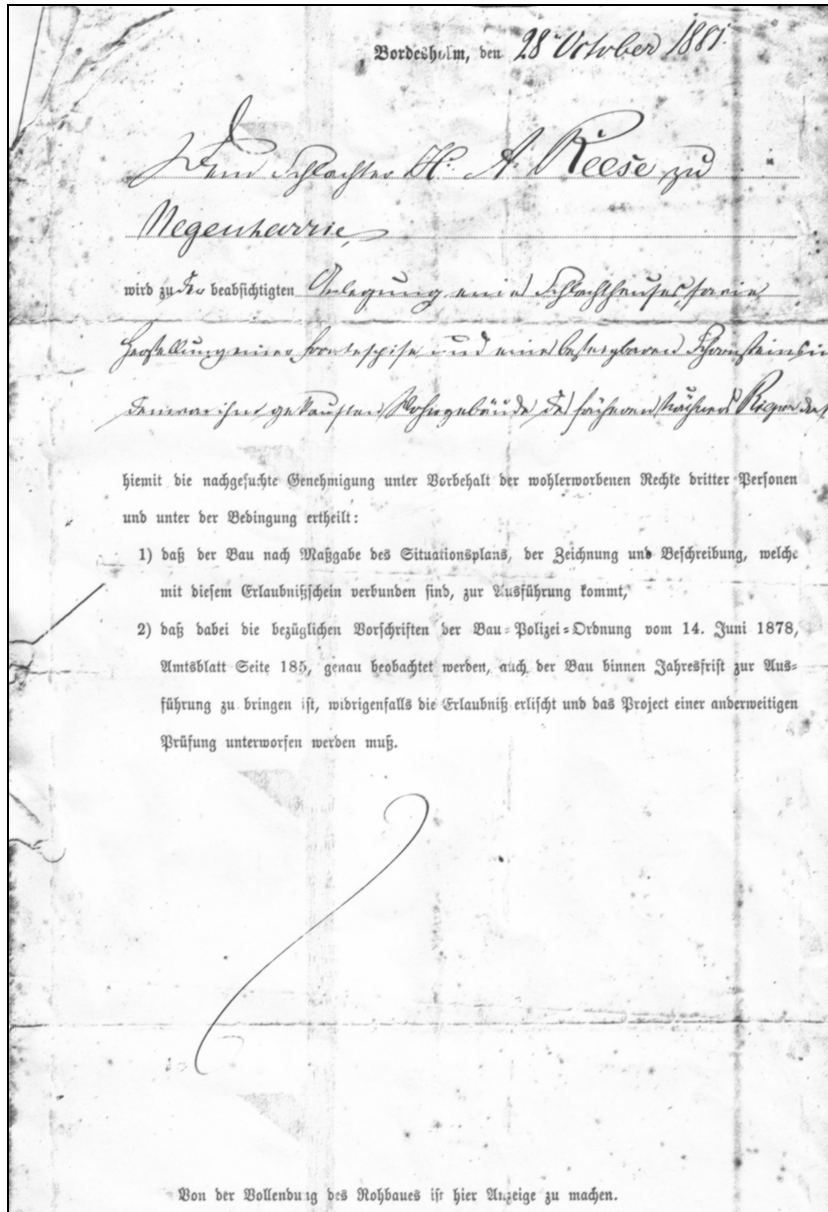 Bordesholm, den 28 October 1881.
Dem Schlachter H. A. Reese zu
Negenharrie,
wird zu der beabsichtigten Anlegung eines Schlachthauses, sowie
Herstellung einer Frontespise und eines besteigbaren Schornsteins in
dem von ihm gekauften Wohngebäude des früheren
hiemit die nachgesuchte Genehmigung unter Vorbehalt der wohlerworbenen Rechte dritter Personen
und unter der Bedingung ertheilt:
1) daß der Bau nach Maßgabe des Situationsplans, der Zeichnung und Beschreibung, welche
mit diesem Erlaubnißschein verbunden sind, zur Ausführung kommt,
2) daß dabei die bezüglichen Vorschriften der Bau-Polizei-Ordnung vom 14. Juni 1878,
Amtsblatt Seite 185, genau beobachtet werden, auch der Bau binnen Jahresfrist zur Aus-
führung zu bringen ist, widrigenfalls die Erlaubniß erlischt und das Project einer anderweitigen
Prüfung unterworfen werden muß.
Von der Vollendung des Rohbaues ist hier Anzeige zu machen.